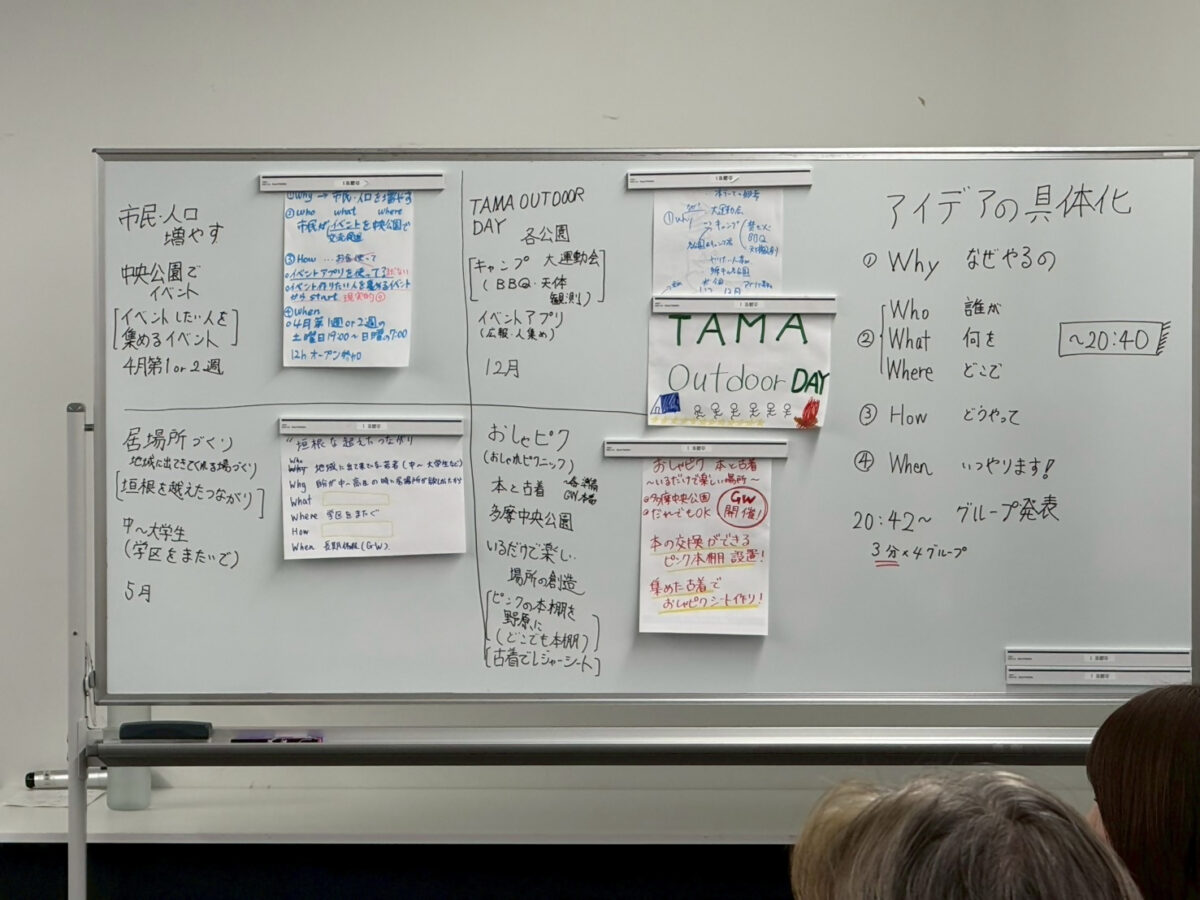 市民・人口
増やす
中央公園で
イベント
イベントしたい人を
集めるイベント
4月第1or2週
①Why → 市民・人口を増やす
②who what where
市民が イベントを 中央公園で
③How …お金使って
○イベントアプリを使ってる
○イベント作りたい人を集めるイベント
から start 現実的◎
④when
○4月第1週or2週の
土曜日19:00〜日曜の7:00
12h オープン参加
TAMA OUTDOOR
DAY 各公園
キャンプ 大運動会
(BBQ・天体
観測)
イベントアプリ
(広報・人集め)
12月
①Why
大運動会
キャンプ
BBQ
TAMA
Outdoor DAY
居場所づくり
地域に出てきてくれる場づくり
[垣根を越えたつながり]
中〜大学生
(学区をまたいで)
5月
"垣根を越えたつながり
Who
Why 地域に出て来ない若者(中〜大学生など)
Why
What
Where 学区をまたぐ
How
When 長期休暇(GW)
おしゃピク
(おしゃれピクニック)
本と古着
GW本番
多摩中央公園
いるだけで楽しい
場所の創造
ピンクの本棚を
野原に
(どこでも本棚)
[古着でレジャーシート]
おしゃピク 本と古着
〜いるだけで楽しい場所〜
◎多摩中央公園
◎だれでもOK
GW
開催!
本の交換ができる
ピンク本棚 設置!
集めた古着で
おしゃピクシート作り!
アイデアの具体化
① Why なぜやるの
② Who 誰が
What 何を
Where どこで
〜20:40
③ How どうやって
④ When いつやります!
20:42〜 グループ発表
3分×4グループ